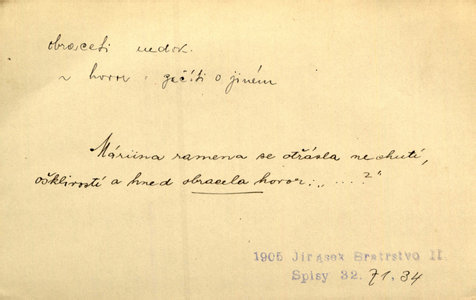 obraceti nedok.
~ hovor : začíti o jiném
Máriina ramena se otřásla nechutí,
ošklivostí a hned obracela hovor: „....?"
1905 Jirásek Bratrstvo II.
Spisy 32. 71.34